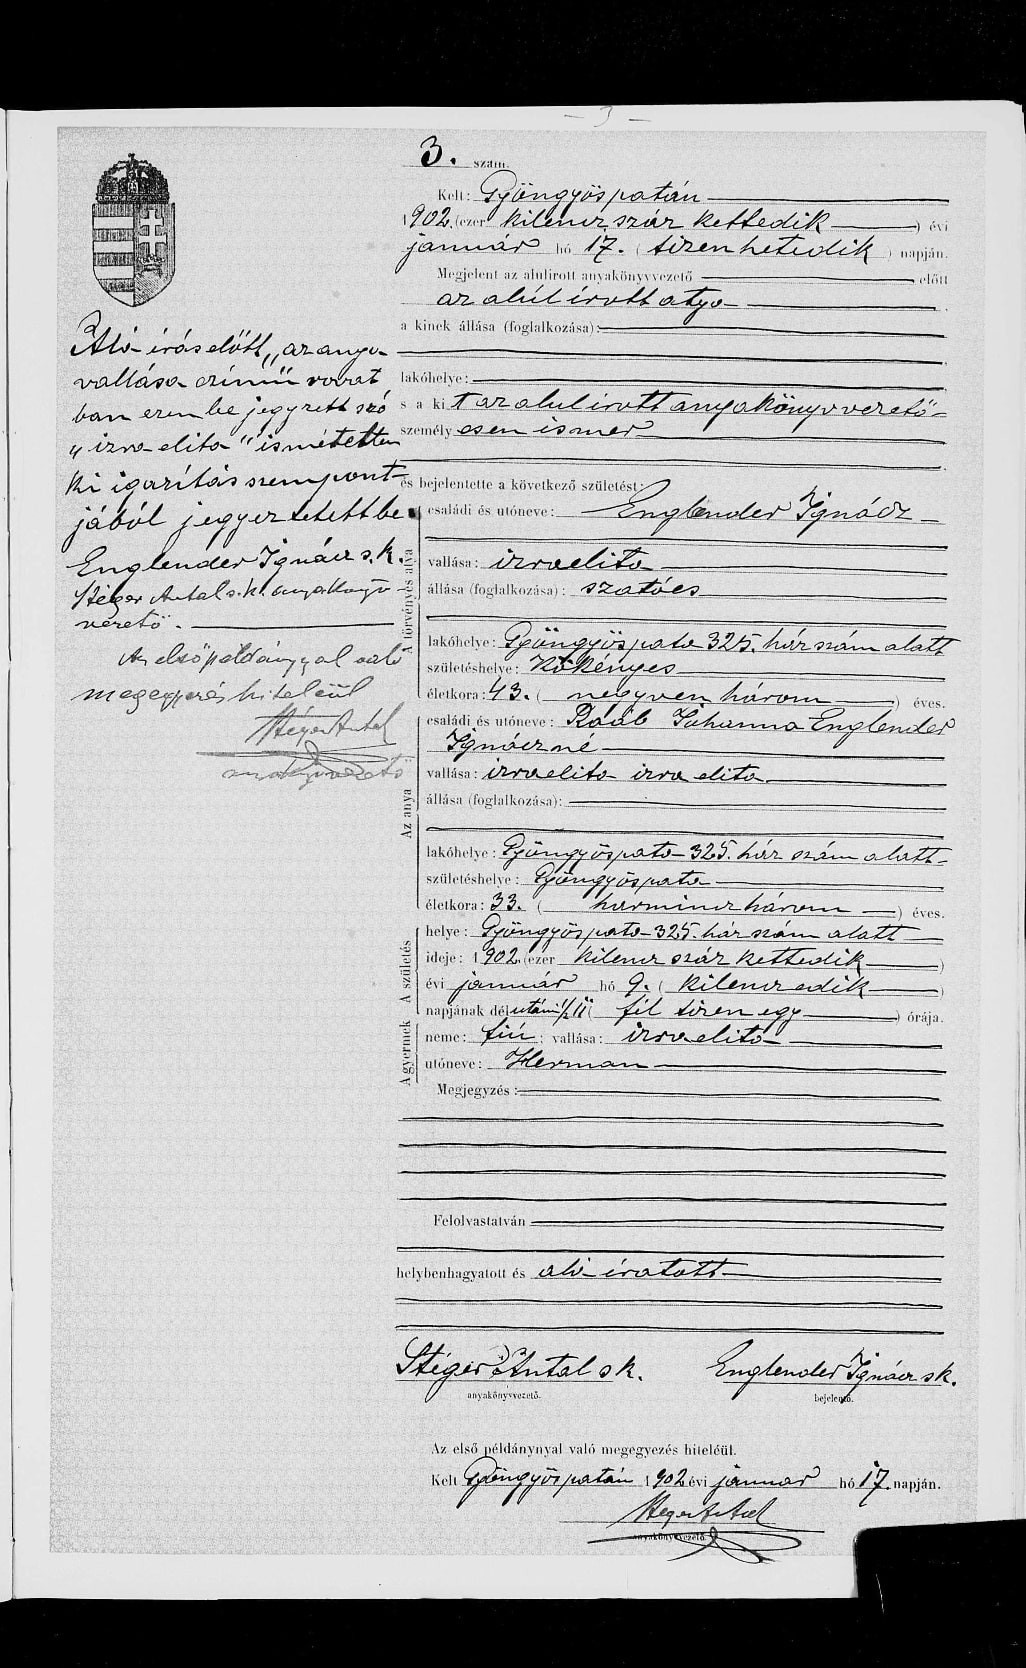 - 3 -
3. szám.
Kelt: Gyöngyöspatán
1902. (ezer kilencz száz kettedik ) évi
január hó 17. ( tizenhetedik ) napján.
Megjelent az alulirott anyakönyvvezető előtt
az alúlírott atya
a kinek állása (foglalkozása):
lakóhelye:
s a kit az alulírott anyakönyvvezető
személyesen ismer
és bejelentette a következő születést:
A törvényes atya
családi és utóneve: Englender Ignácz
vallása: izraelita
állása (foglalkozása): szatócs
lakóhelye: Gyöngyöspata 325. ház szám alatt
születéshelye: Kökényes
életkora: 43. ( negyven három ) éves.
Az anya
családi és utóneve: Raáb Johanna Englender
Ignáczné
vallása: izraelita izraelita
állása (foglalkozása):
lakóhelye: Gyöngyöspata 325. ház szám alatt
születéshelye: Gyöngyöspata
életkora: 33. ( harmincz három ) éves.
A születés
helye: Gyöngyöspata 325. ház szám alatt
ideje: 1902. (ezer kilencz száz kettedik )
évi január hó 9. ( kilenczedik )
napjának délutáni ½ 11 ( fél tizen egy ) órája.
A gyermek
neme: fiú; vallása: izraelita
utóneve: Herman
Megjegyzés:
Felolvastatván
helybenhagyatott és alá íratott
Stéger Antal s k. Englender Ignácz sk.
anyakönyvvezető. bejelentő.
Az első példánynyal való megegyezés hiteléül.
Kelt Gyöngyöspatán 1902 évi január hó 17. napján.
Stéger Antal
anyakönyvvezető.
Alá írás előtt, "az anya
vallása czímű rovat
ban ezen be jegyzett szó
"izraelita" ismételten
ki igazítás szempont-
jából jegyeztetett be.
Englender Ignácz s. k.
Stéger Antal s. k. anyakönyv-
vezető.
Az első példánnyal való
megegyezés hiteléül
Stéger Antal
anyakönyvvezető